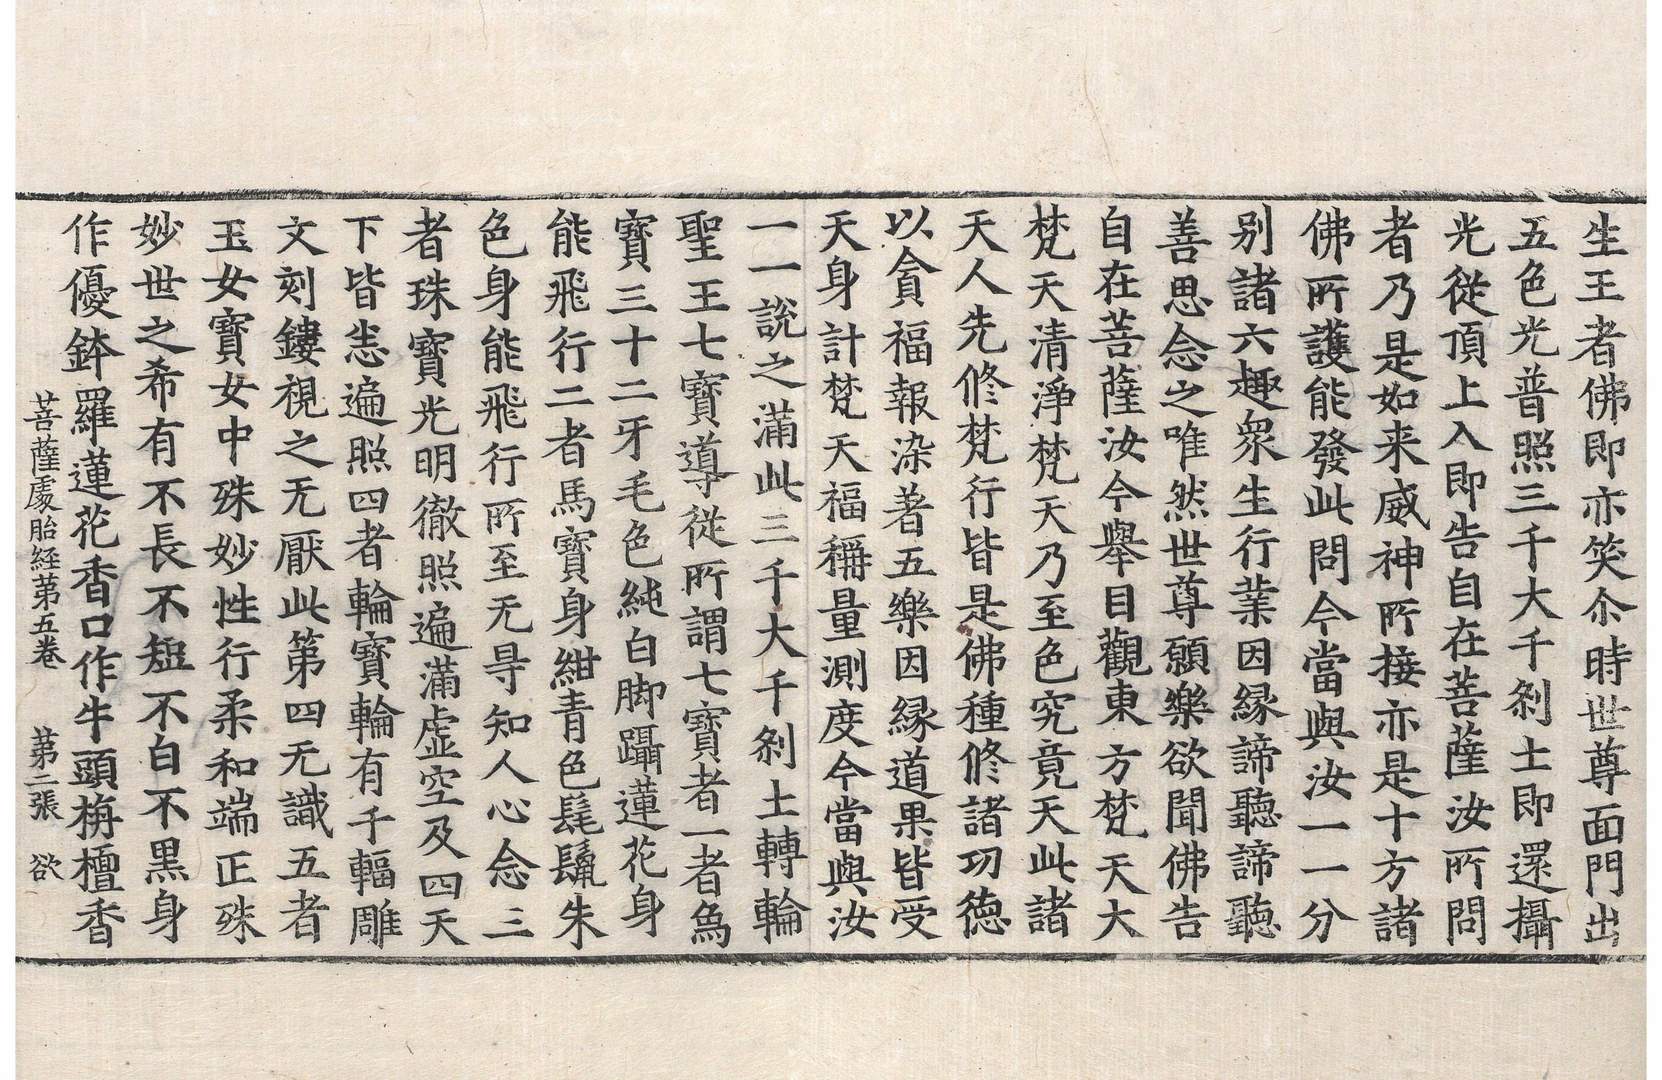 生王者佛即亦笑尒時世尊面門出
五色光普照三千大千剎土即還攝
光從頂上入即告自在菩薩汝所問
者乃是如来威神所接亦是十方諸
佛所護能發此問今當與汝一一分
别諸六趣衆生行業因緣諦聽諦聽
善思念之唯然世尊願樂欲聞佛告
自在菩薩汝今舉目觀東方梵天大
梵天清淨梵天乃至色究竟天此諸
天人先修梵行皆是佛種修諸功德
以貪福報染著五樂因緣道果皆受
天身計梵天福稱量測度今當與汝
一一說之滿此三千大千剎土轉輪
聖王七寶導從所謂七寶者一者烏
寶三十二牙毛色純白脚躡蓮花身
能飛行二者馬寶身紺青色髦鬣朱
色身能飛行所至无㝵知人心念三
者珠寶光明徹照遍滿虛空及四天
下皆悉遍照四者輪寶輪有千輻雕
文刻鏤視之无厭此第四无識五者
玉女寶女中殊妙性行柔和端正殊
妙世之希有不長不短不白不黒身
作優鉢羅蓮花香口作牛頭栴檀香
菩薩處胎経苐五卷 苐二張 欲